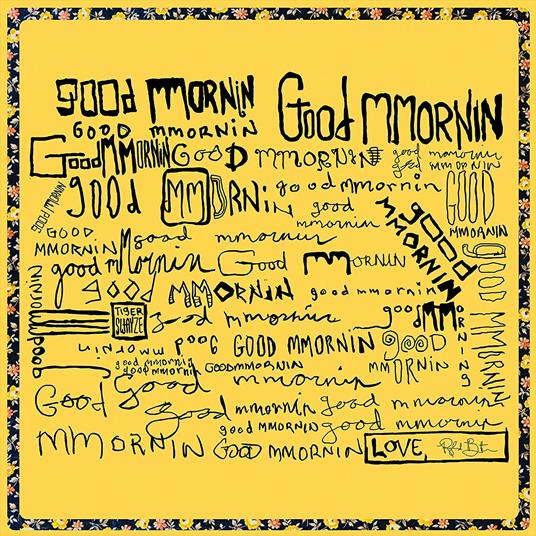 good mmornin Good mmornin
GOOD MMORNIN
Good MMORNIN Good MMORNIN good mmornin
good mmornin
good MMORNIN good mmornin GOOD
MMORNIN
good
mmornin
good mmornin
GOOD
MMORNIN
good mmornin
good MMORNIN
good mmornin Good MMORNIN
good MMORNIN good mmornin
good MMORNIN
good MMORNIN
good mmornin
TIGER
SWAYZE
good mmornin
good MMORNING
mmornin good GOOD MMORNIN good
MMORNIN
good mmornin
good mmornin GOODMMORNIN
good mmornin
Good
MMORNIN
good mmornin good mmornin
good MMORNIN good mmornin
Good MMORNIN
LOVE,